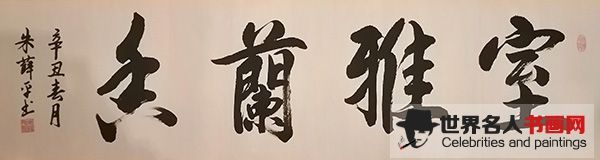 室雅蘭香
辛丑春月
朱薛平书
世界名人书画网
Celebrities and paintings